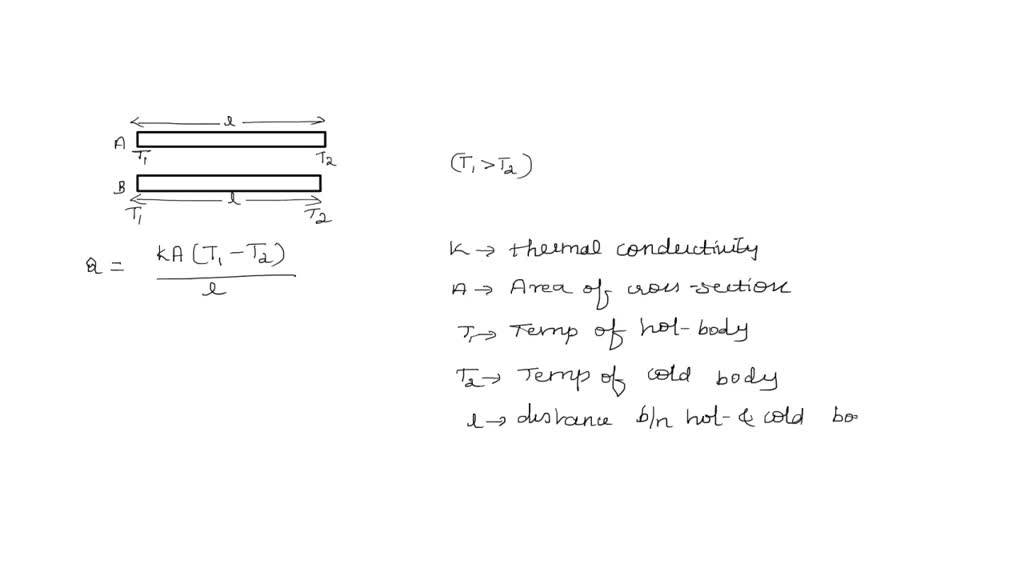 l
A
T₁ T₂
B
l
T₁ T₂
(T₁ > T₂)
Q = KA (T₁ - T₂) / l
K → thermal conductivity
A → Area of cross-section
T₁ → Temp of hot-body
T₂ → Temp of cold body
l → distance b/n hot- & cold bo